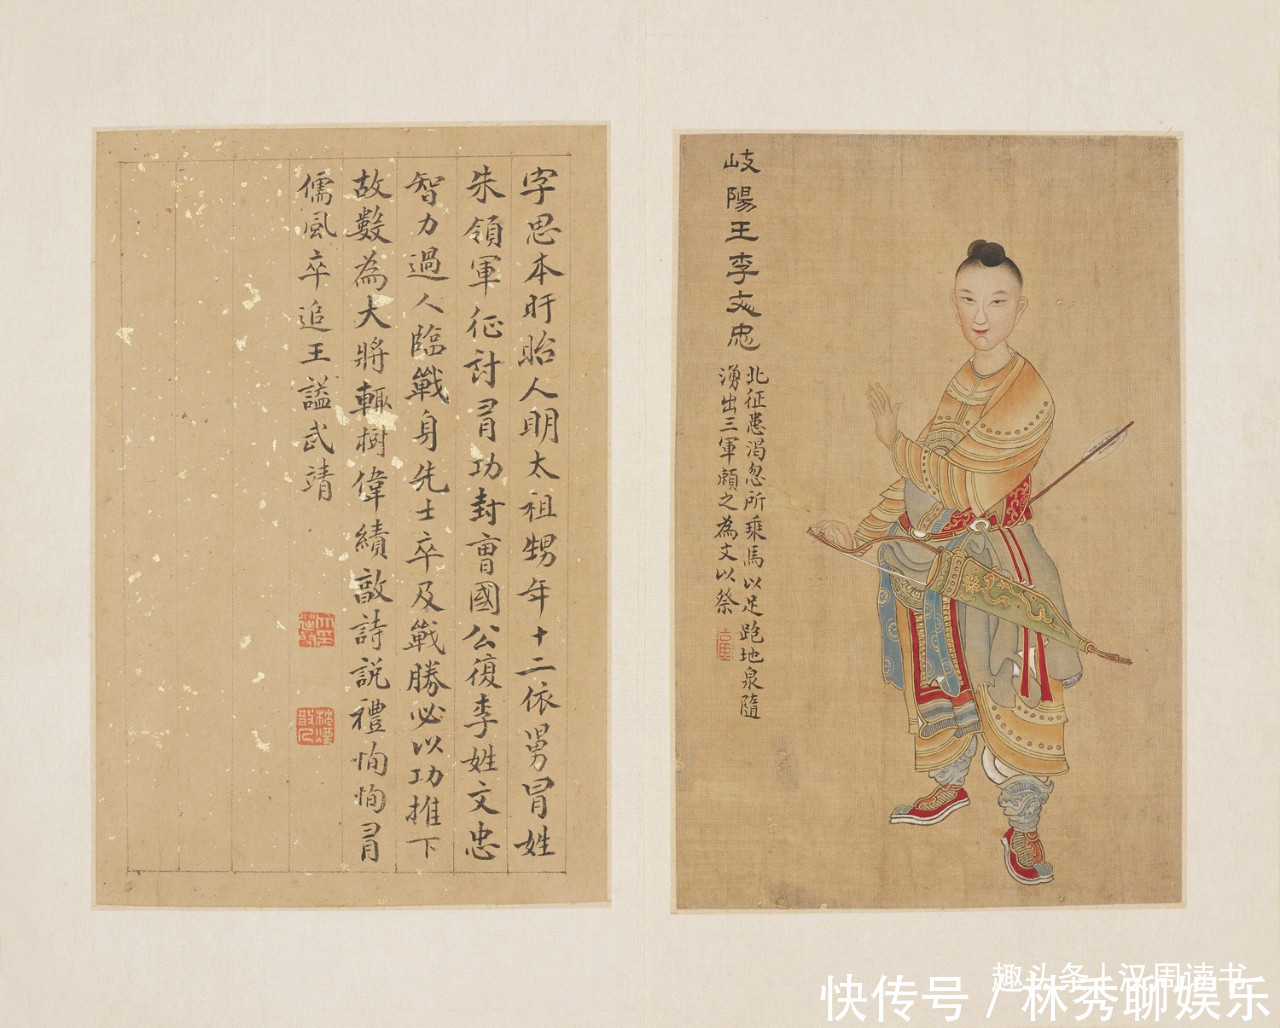 岐陽王李文忠
北征患渴忽所乘馬以足跑地泉隨
湧出三軍賴之為文以祭
字思本盱眙人明太祖甥年十二依舅冒姓
朱領軍征討有功封曹國公復李姓文忠
智力過人臨戰身先士卒及戰勝必以功推下
故數為大將輒樹偉績敦詩説禮恂恂有
儒風卒追王謚武靖
趣头条 | 汉周读书
快传号 / 林秀聊娱乐